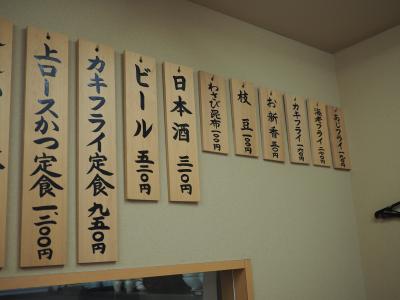 上ロースかつ定食 一、二〇〇円
カキフライ定食 九五〇円
ビール 五二〇円
日本酒 三一〇円
わさび昆布 一〇〇円
枝豆 一〇〇円
お新香 五〇円
カキフライ 一六〇円
海老フライ 二〇〇円
あじフライ